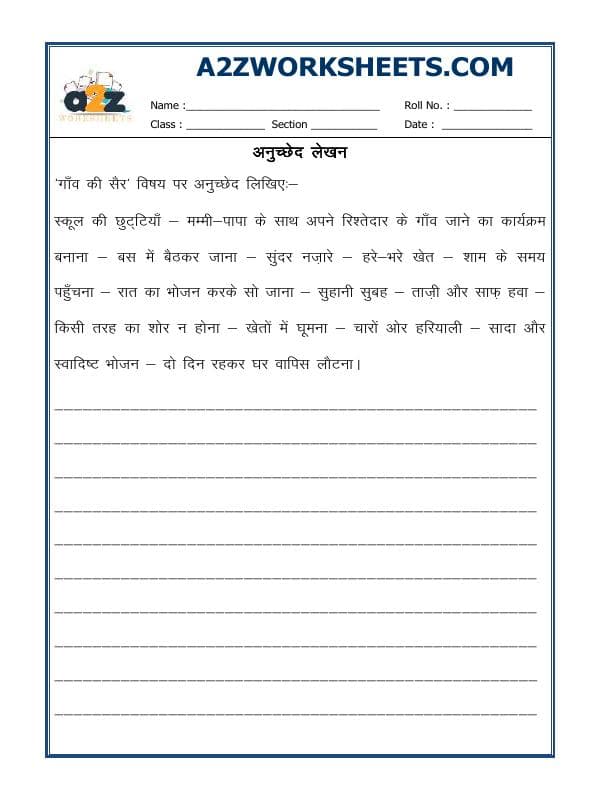 A2ZWORKSHEETS.COM
a2z
WORKSHEETS
Name :______________________________ Roll No. : ____________
Class : ____________ Section __________ Date : ______________
अनुच्छेद लेखन
'गाँव की सैर' विषय पर अनुच्छेद लिखिए:–
स्कूल की छुट्टियाँ – मम्मी–पापा के साथ अपने रिश्तेदार के गाँव जाने का कार्यक्रम
बनाना – बस में बैठकर जाना – सुंदर नज़ारे – हरे–भरे खेत – शाम के समय
पहुँचना – रात का भोजन करके सो जाना – सुहानी सुबह – ताज़ी और साफ़ हवा –
किसी तरह का शोर न होना – खेतों में घूमना – चारों ओर हरियाली – सादा और
स्वादिष्ट भोजन – दो दिन रहकर घर वापिस लौटना।